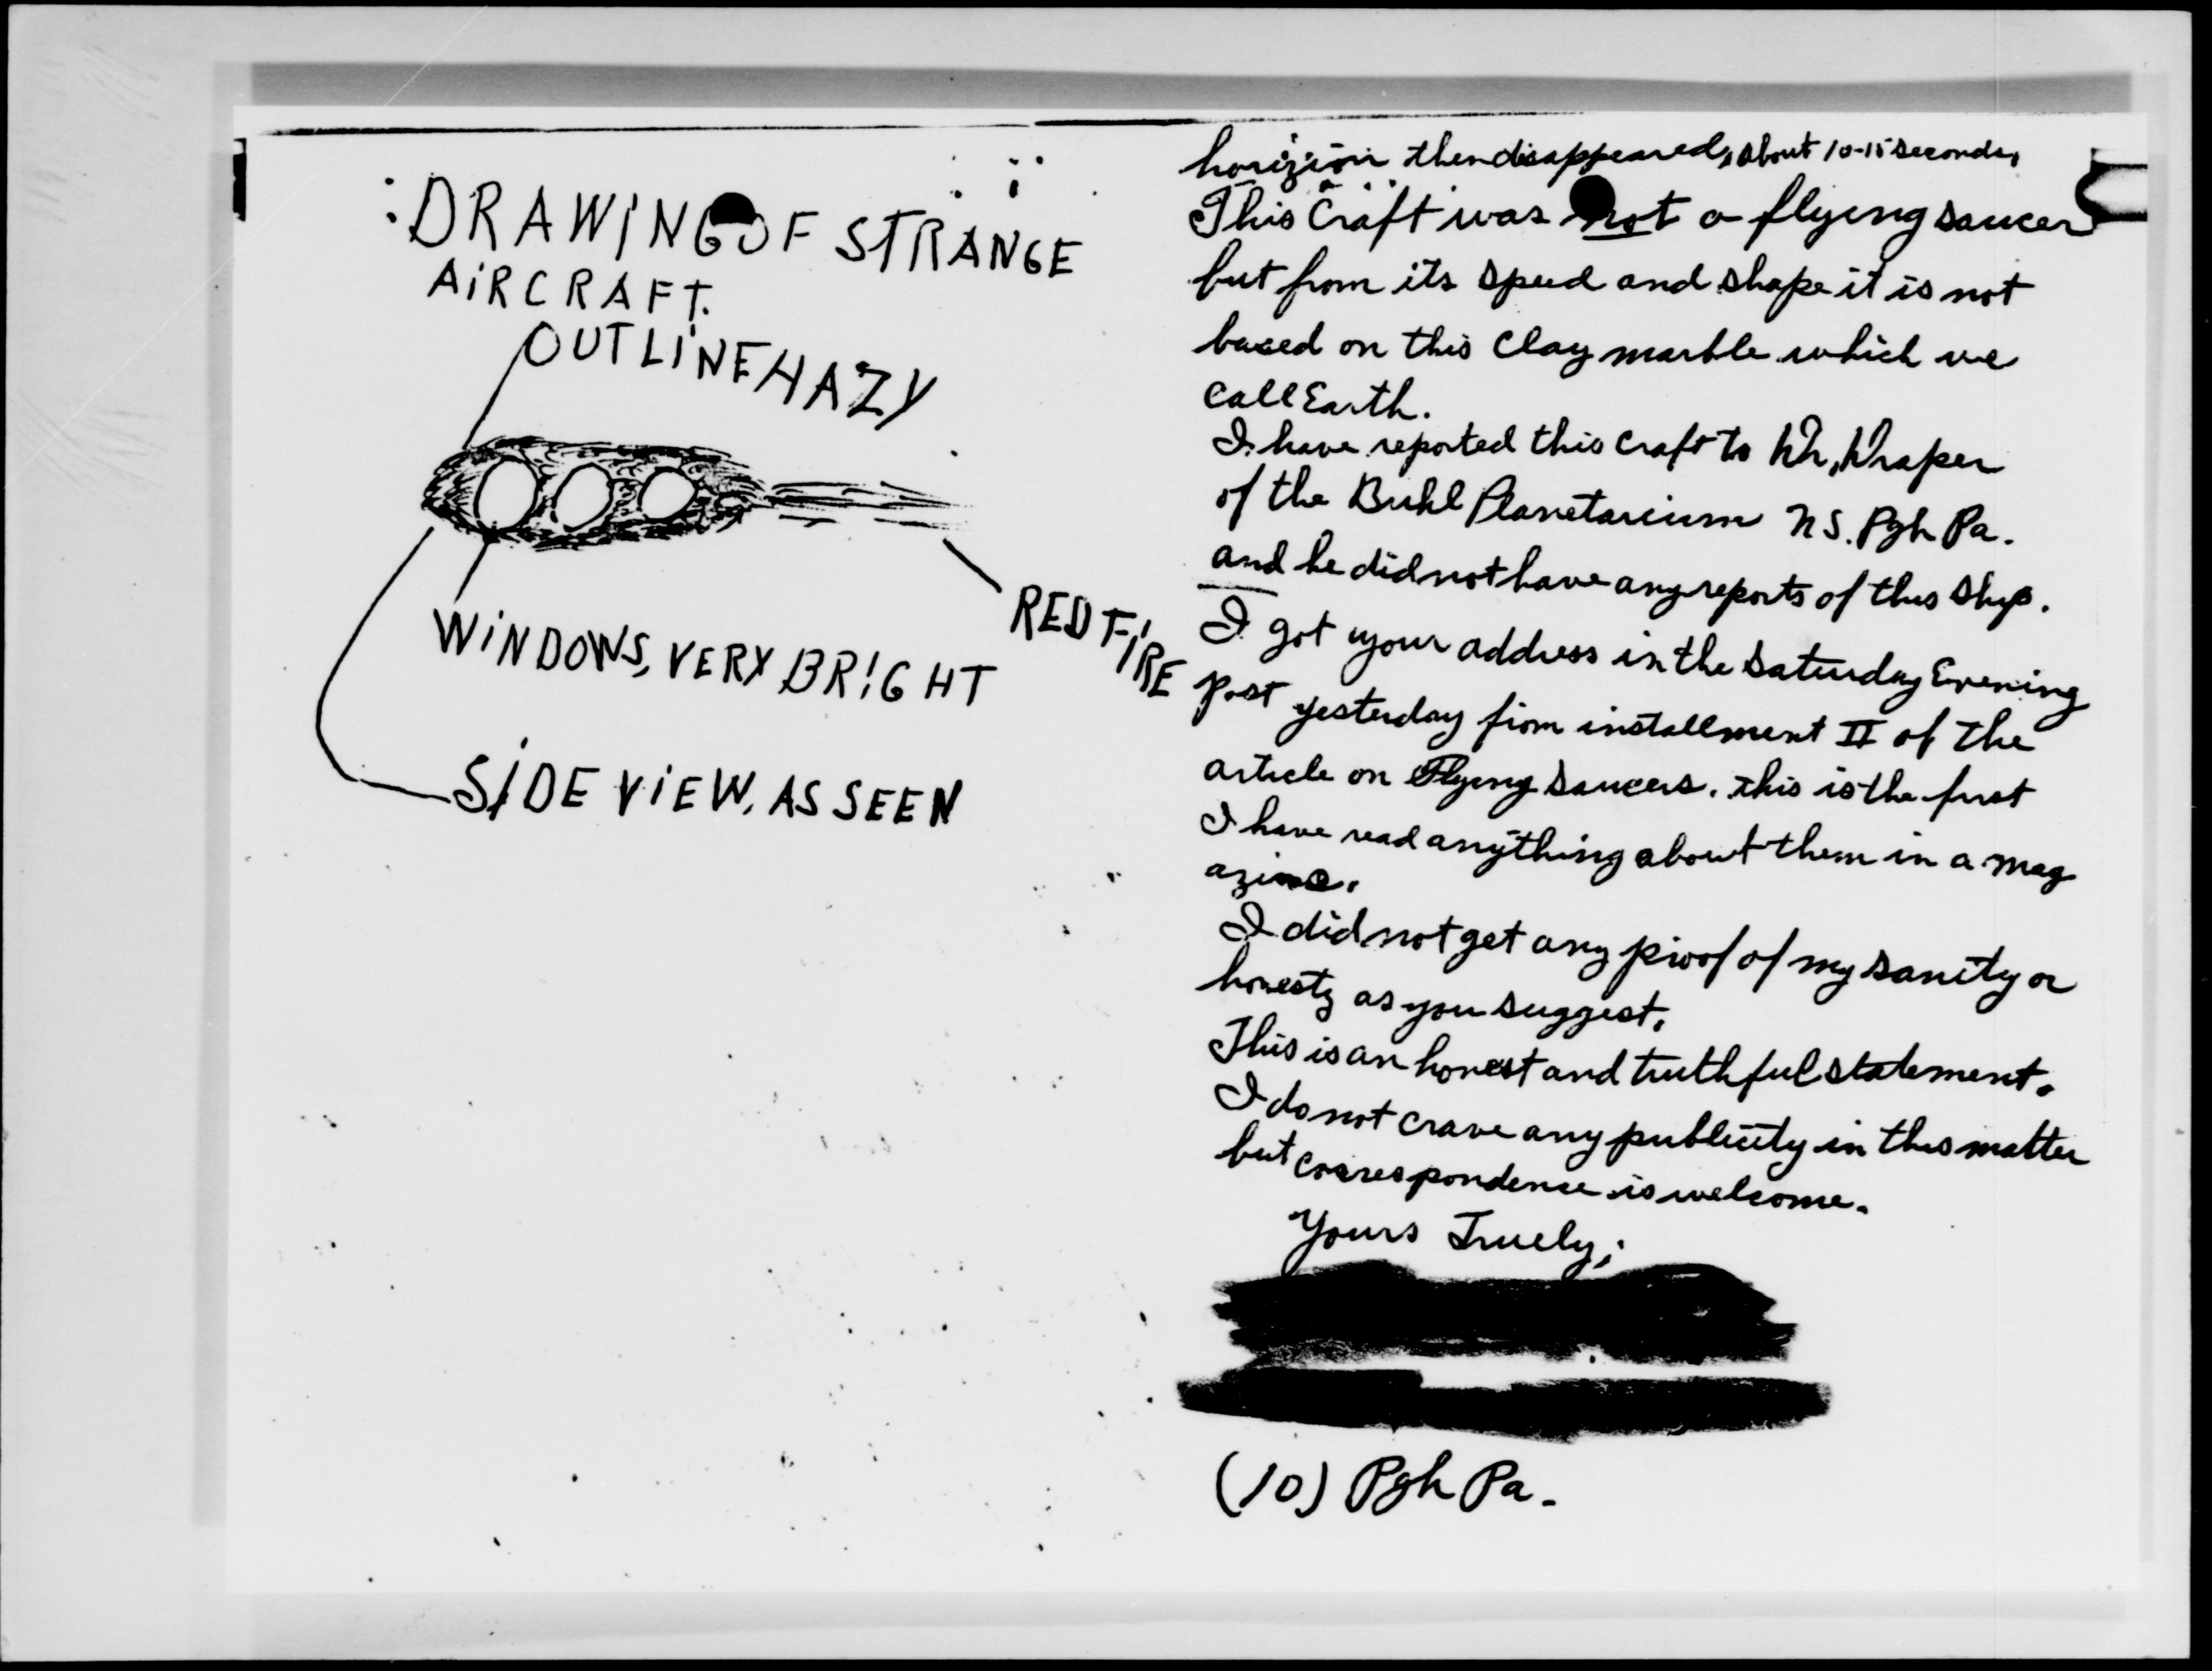 DRAWING OF STRANGE
AIRCRAFT.
OUTLINE HAZY
WINDOWS, VERY BRIGHT
RED FIRE
SIDE VIEW, AS SEEN
horizion then disappeared, about 10-15 seconds,
This Craft was not a flying saucer
but from its speed and shape it is not
based on this Clay marble which we
Call Earth.
I have reported this craft to Draper
of the Buhl Planetarium N S. Pgh Pa.
and he did not have any reports of this ship.
I got your address in the Saturday Evening
Post yesterday from installment II of the
article on Flying Saucers. This is the first
I have read anything about them in a mag
azine.
I did not get any proof of my sanity or
honesty as you suggest.
This is an honest and truthful statement.
I do not crave any publicity in this matter
but correspondence is welcome.
Yours Truely;
(10) Pgh Pa.